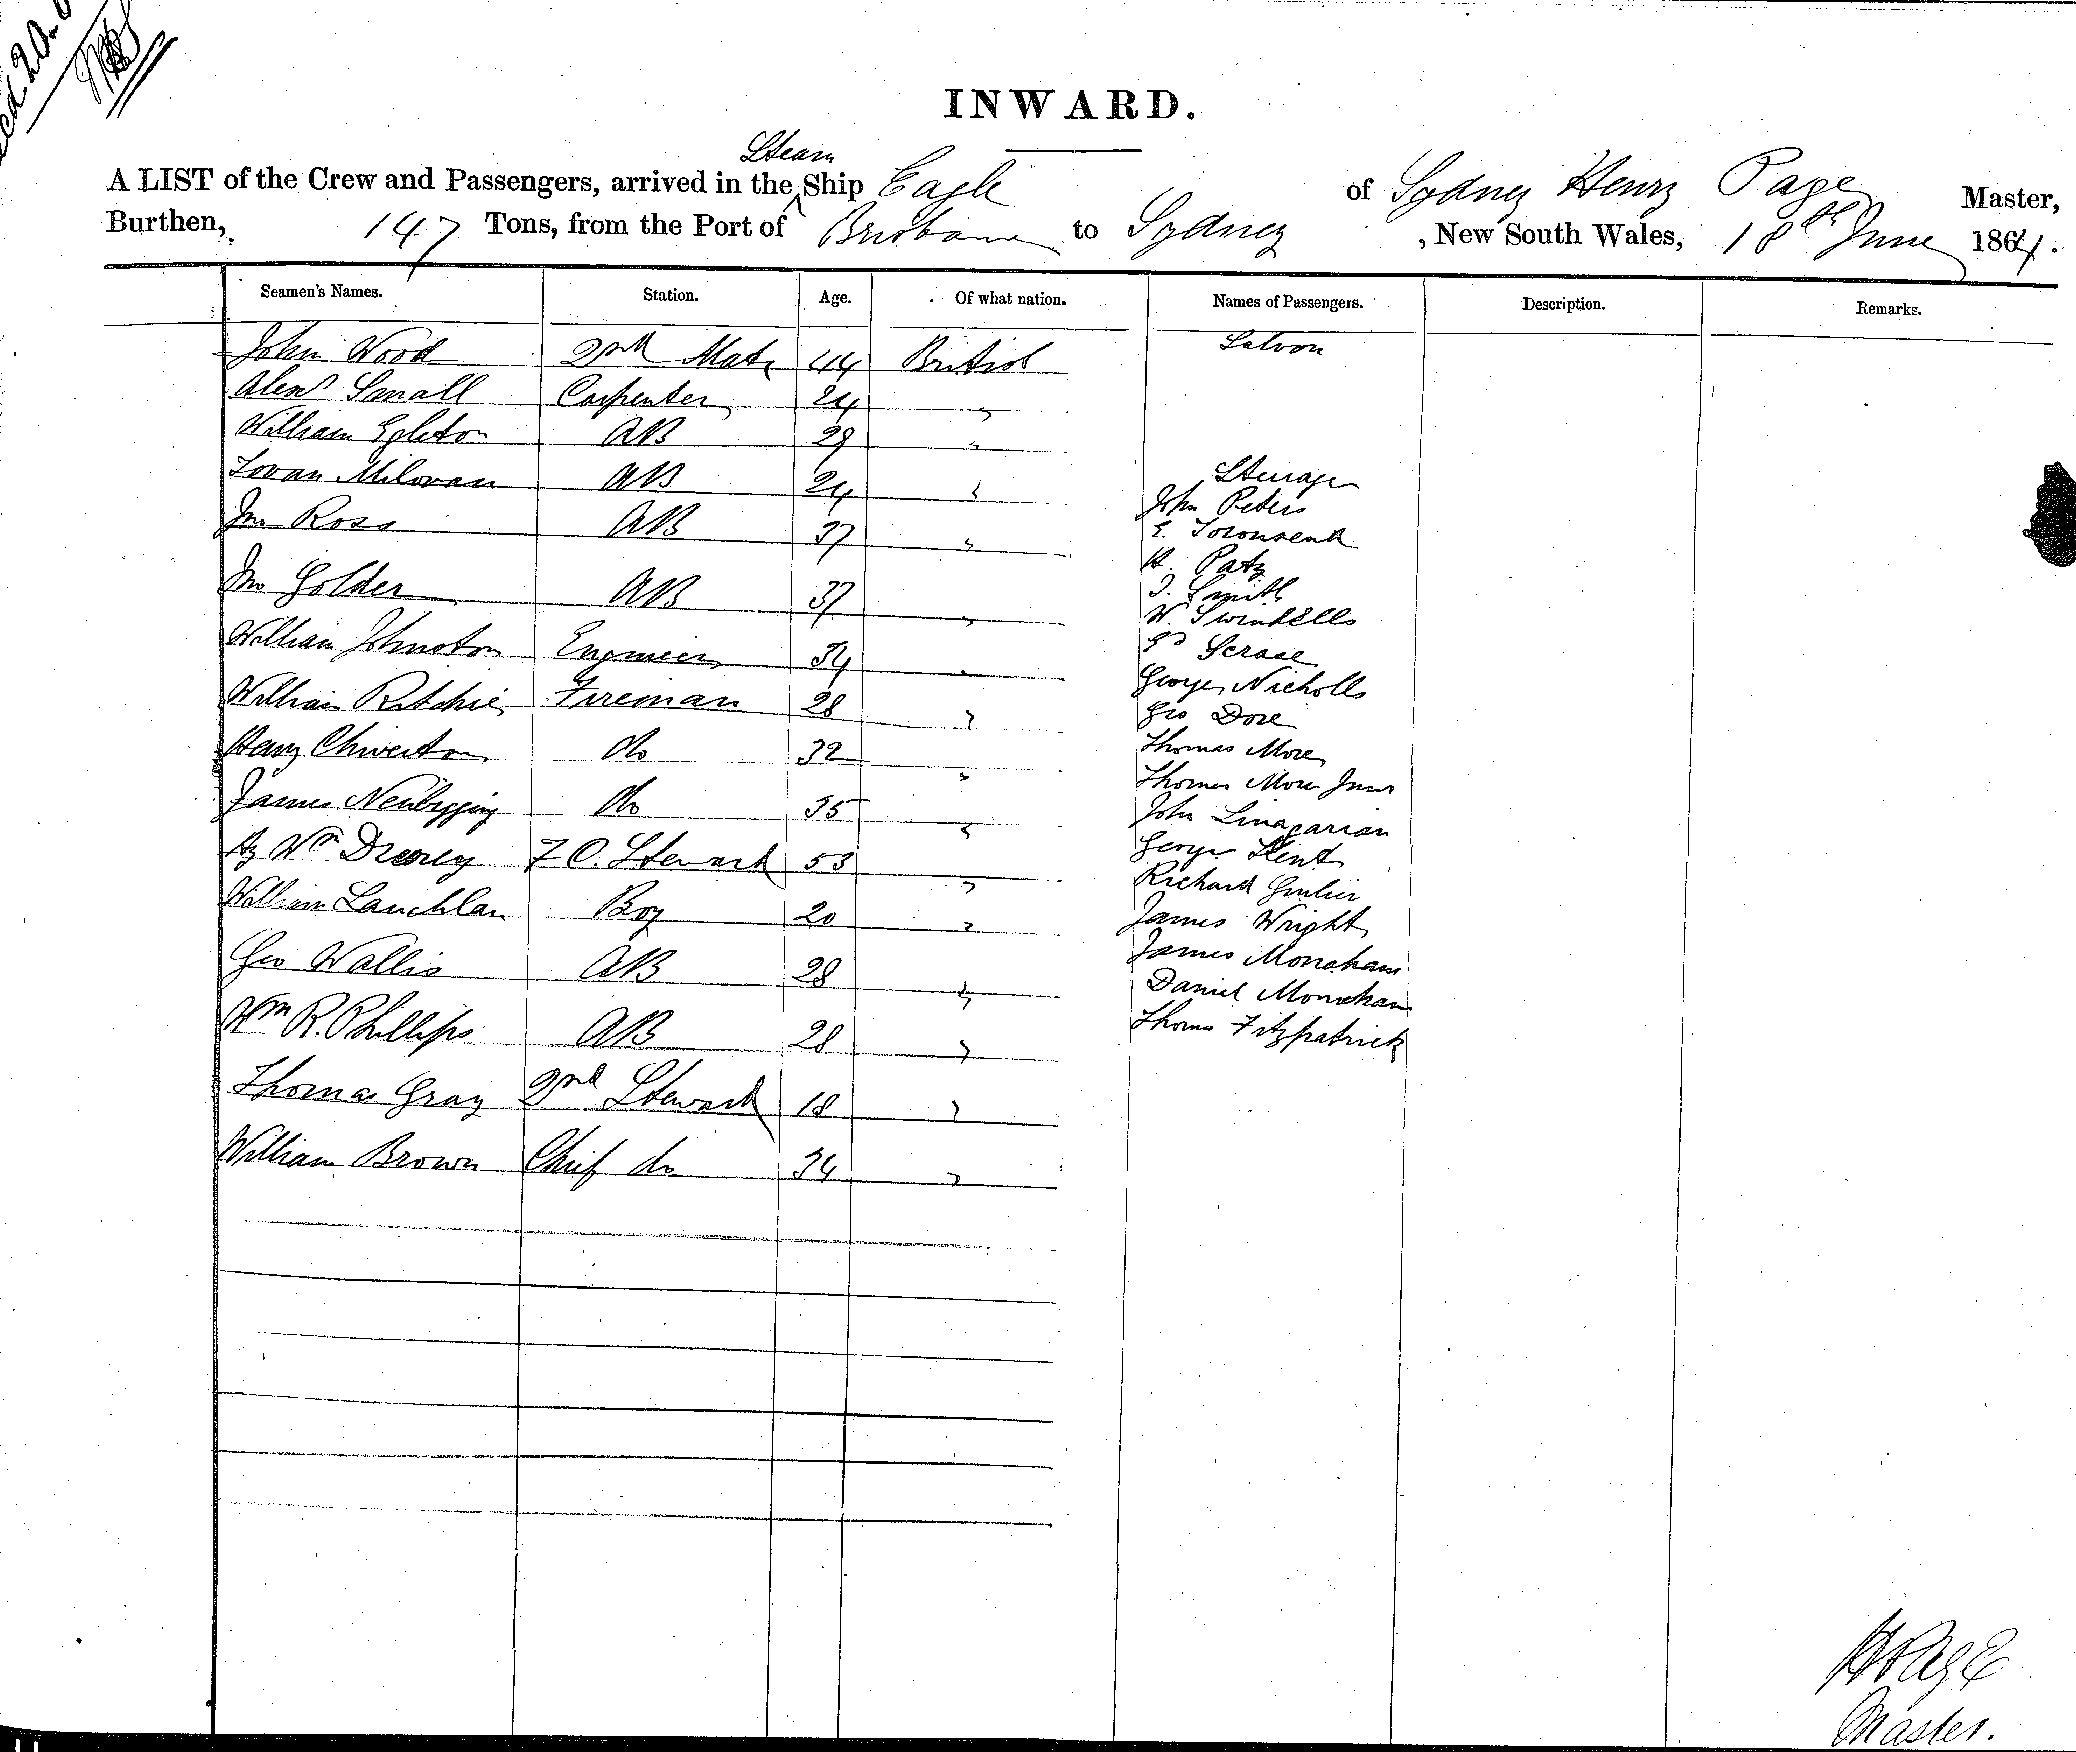 INWARD.
Steam
A LIST of the Crew and Passengers, arrived in the ^ Ship Eagle of Sydney Henry Page Master,
Burthen, 147 Tons, from the Port of Brisbane to Sydney , New South Wales, 18th June 1864.
Seamen's Names. Station. Age. Of what nation. Names of Passengers. Description. Remarks.
John Wood 2nd Mate 44 British
Alexr Small Carpenter 24 "
William Egleton AB 29 "
Milovan AB 24 "
Jno Ross AB 37 "
Jno Golder AB 37 "
William Johnston Engineer 34 "
William Ritchie Fireman 28 "
Henry Chiverton do 32 "
James Newbigging do 35 "
Hy Wm F.C. Steward 53 "
William Lauchlan Boy 20 "
Geo Wallis AB 28 "
Wm R. Phillips AB 28 "
Thomas Gray 2nd Steward 18 "
William Brown Chief do 34 "
Saloon
Steerage
John Peters
E. Townsend
H. Paty
J. Smith
W. Swindells
Scrase
George Nicholls
Geo Dore
Thomas More
Thomas More Junr
John
George Kent
Richard
James Wright
James Monaham
Daniel Monaham
Thomas Fitzpatrick
HPage
Master.